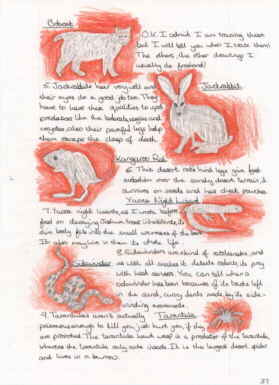 Bobcat
O.K. I admit I am tracing these
but I will tell you when I trace them
The others, the other drawing I
usually do freehand!
5. Jackrabbits hear very well and
their eyes do a good job too. They
have to have these qualities to spot
predators like the bobcats, eagles and
coyotes, also their powerful legs help
them escape the claws of death.
Jackrabbit
Kangaroo Rat
6. This desert rat's hind legs give fast
over the sandy desert terrain, it
survives on seeds and has cheek pouches.
Yucca Night Lizard
7. Yucca night lizards, as I wrote before
feed on decaying Joshua tree
body fits into the small
It often stays in there its whole life.
Sidewinder
8. Sidewinders are kind of rattlesnake, and
as with all snakes it detects its prey
with heat sensors. You can tell where a
sidewinder has been because of its tracks left
in the sand, curvy dents made by its side-
winding movements.
9. Tarantulas aren't actually
Tarantula
poisonous enough to kill you, just hurt you, if they
are provoked. The tarantula hawk wasp is a predator of the tarantula,
whereas the tarantula only eats insects. It is the largest desert spider
and lives in a burrow.